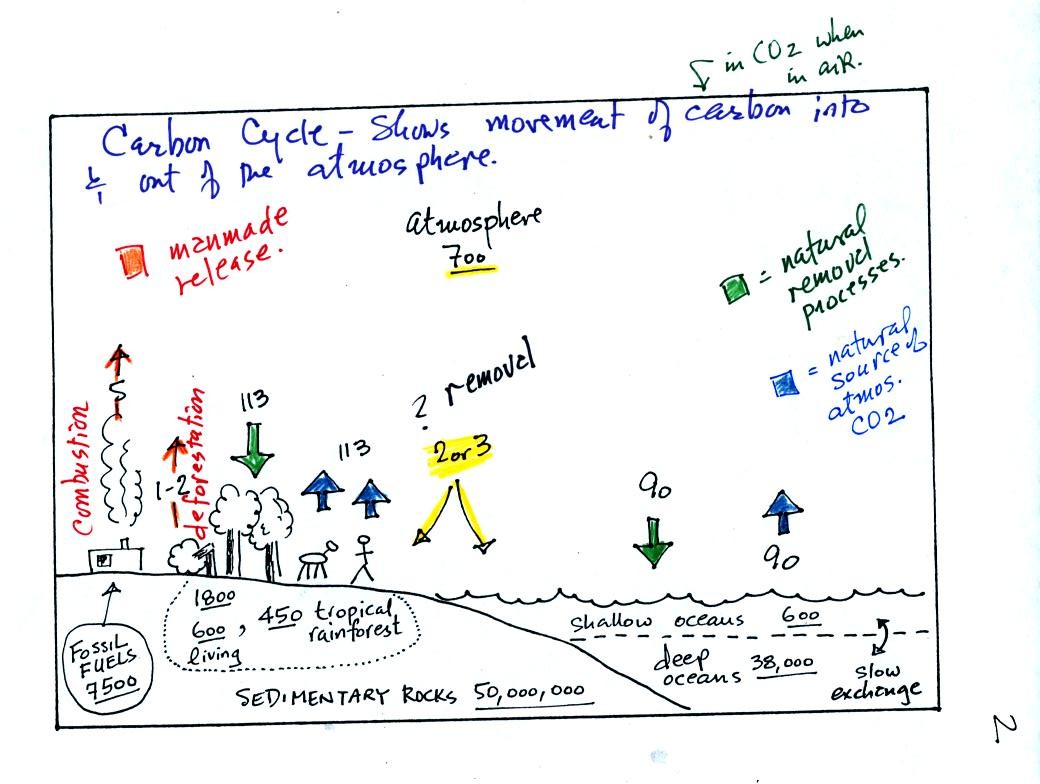 in CO2 when
in air.
Carbon Cycle - Shows movement of carbon into
& out of the atmosphere.
manmade
release.
atmosphere
700
= natural
removal
processes.
= natural
source of
atmos.
CO2
combustion
5
1-2
deforestation
113
113
? removal
2 or 3
90
90
FOSSIL
FUELS
7500
1800
600, 450 tropical
rainforest
living
shallow oceans 600
deep
oceans 38,000
slow
exchange
SEDIMENTARY ROCKS 50,000,000
2